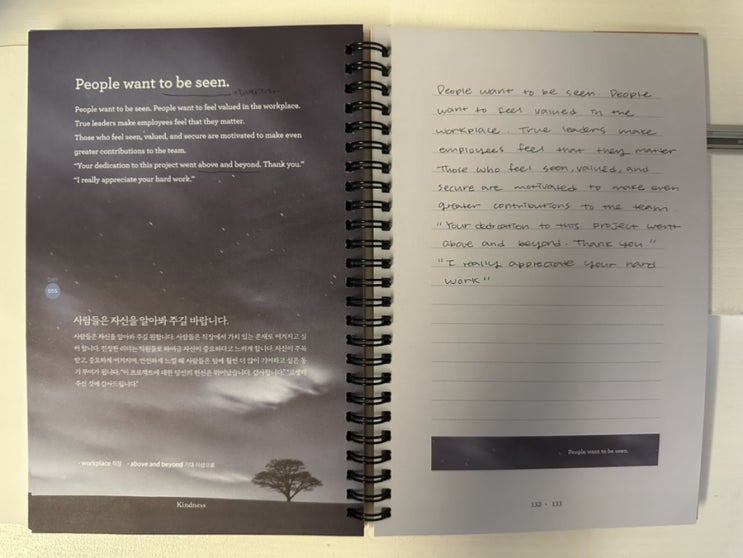 People want to be seen.
People want to be seen. People want to feel valued in the workplace.
True leaders make employees feel that they matter.
Those who feel seen, valued, and secure are motivated to make even
greater contributions to the team.
“Your dedication to this project went above and beyond. Thank you.”
“I really appreciate your hard work.”
DAY
055
사람들은 자신을 알아봐 주길 바랍니다.
사람들은 자신을 알아봐 주길 원합니다. 사람들은 직장에서 가치 있는 존재로 여겨지고 싶
어 합니다. 진정한 리더는 직원들로 하여금 자신이 중요하다고 느끼게 합니다. 자신이 주목
받고, 중요하게 여겨지며, 안전하게 느낄 때 사람들은 팀에 훨씬 더 많이 기여하고 싶은 동
기 부여가 됩니다. “이 프로젝트에 대한 당신의 헌신은 뛰어났습니다. 감사합니다.” “고생해
주신 것에 감사드립니다.”
· workplace 직장 · above and beyond 기대 이상으로
Kindness
People want to be seen People
want to feel valued in the
workplace. True leaders make
employees feel that they matter
Those who feel seen, valued, and
secure are motivated to make even
greater contributions to the team
"Your dedication to this project went
above and beyond. Thank you."
"I really appreciate your hard
work"
People want to be seen.
132 · 133